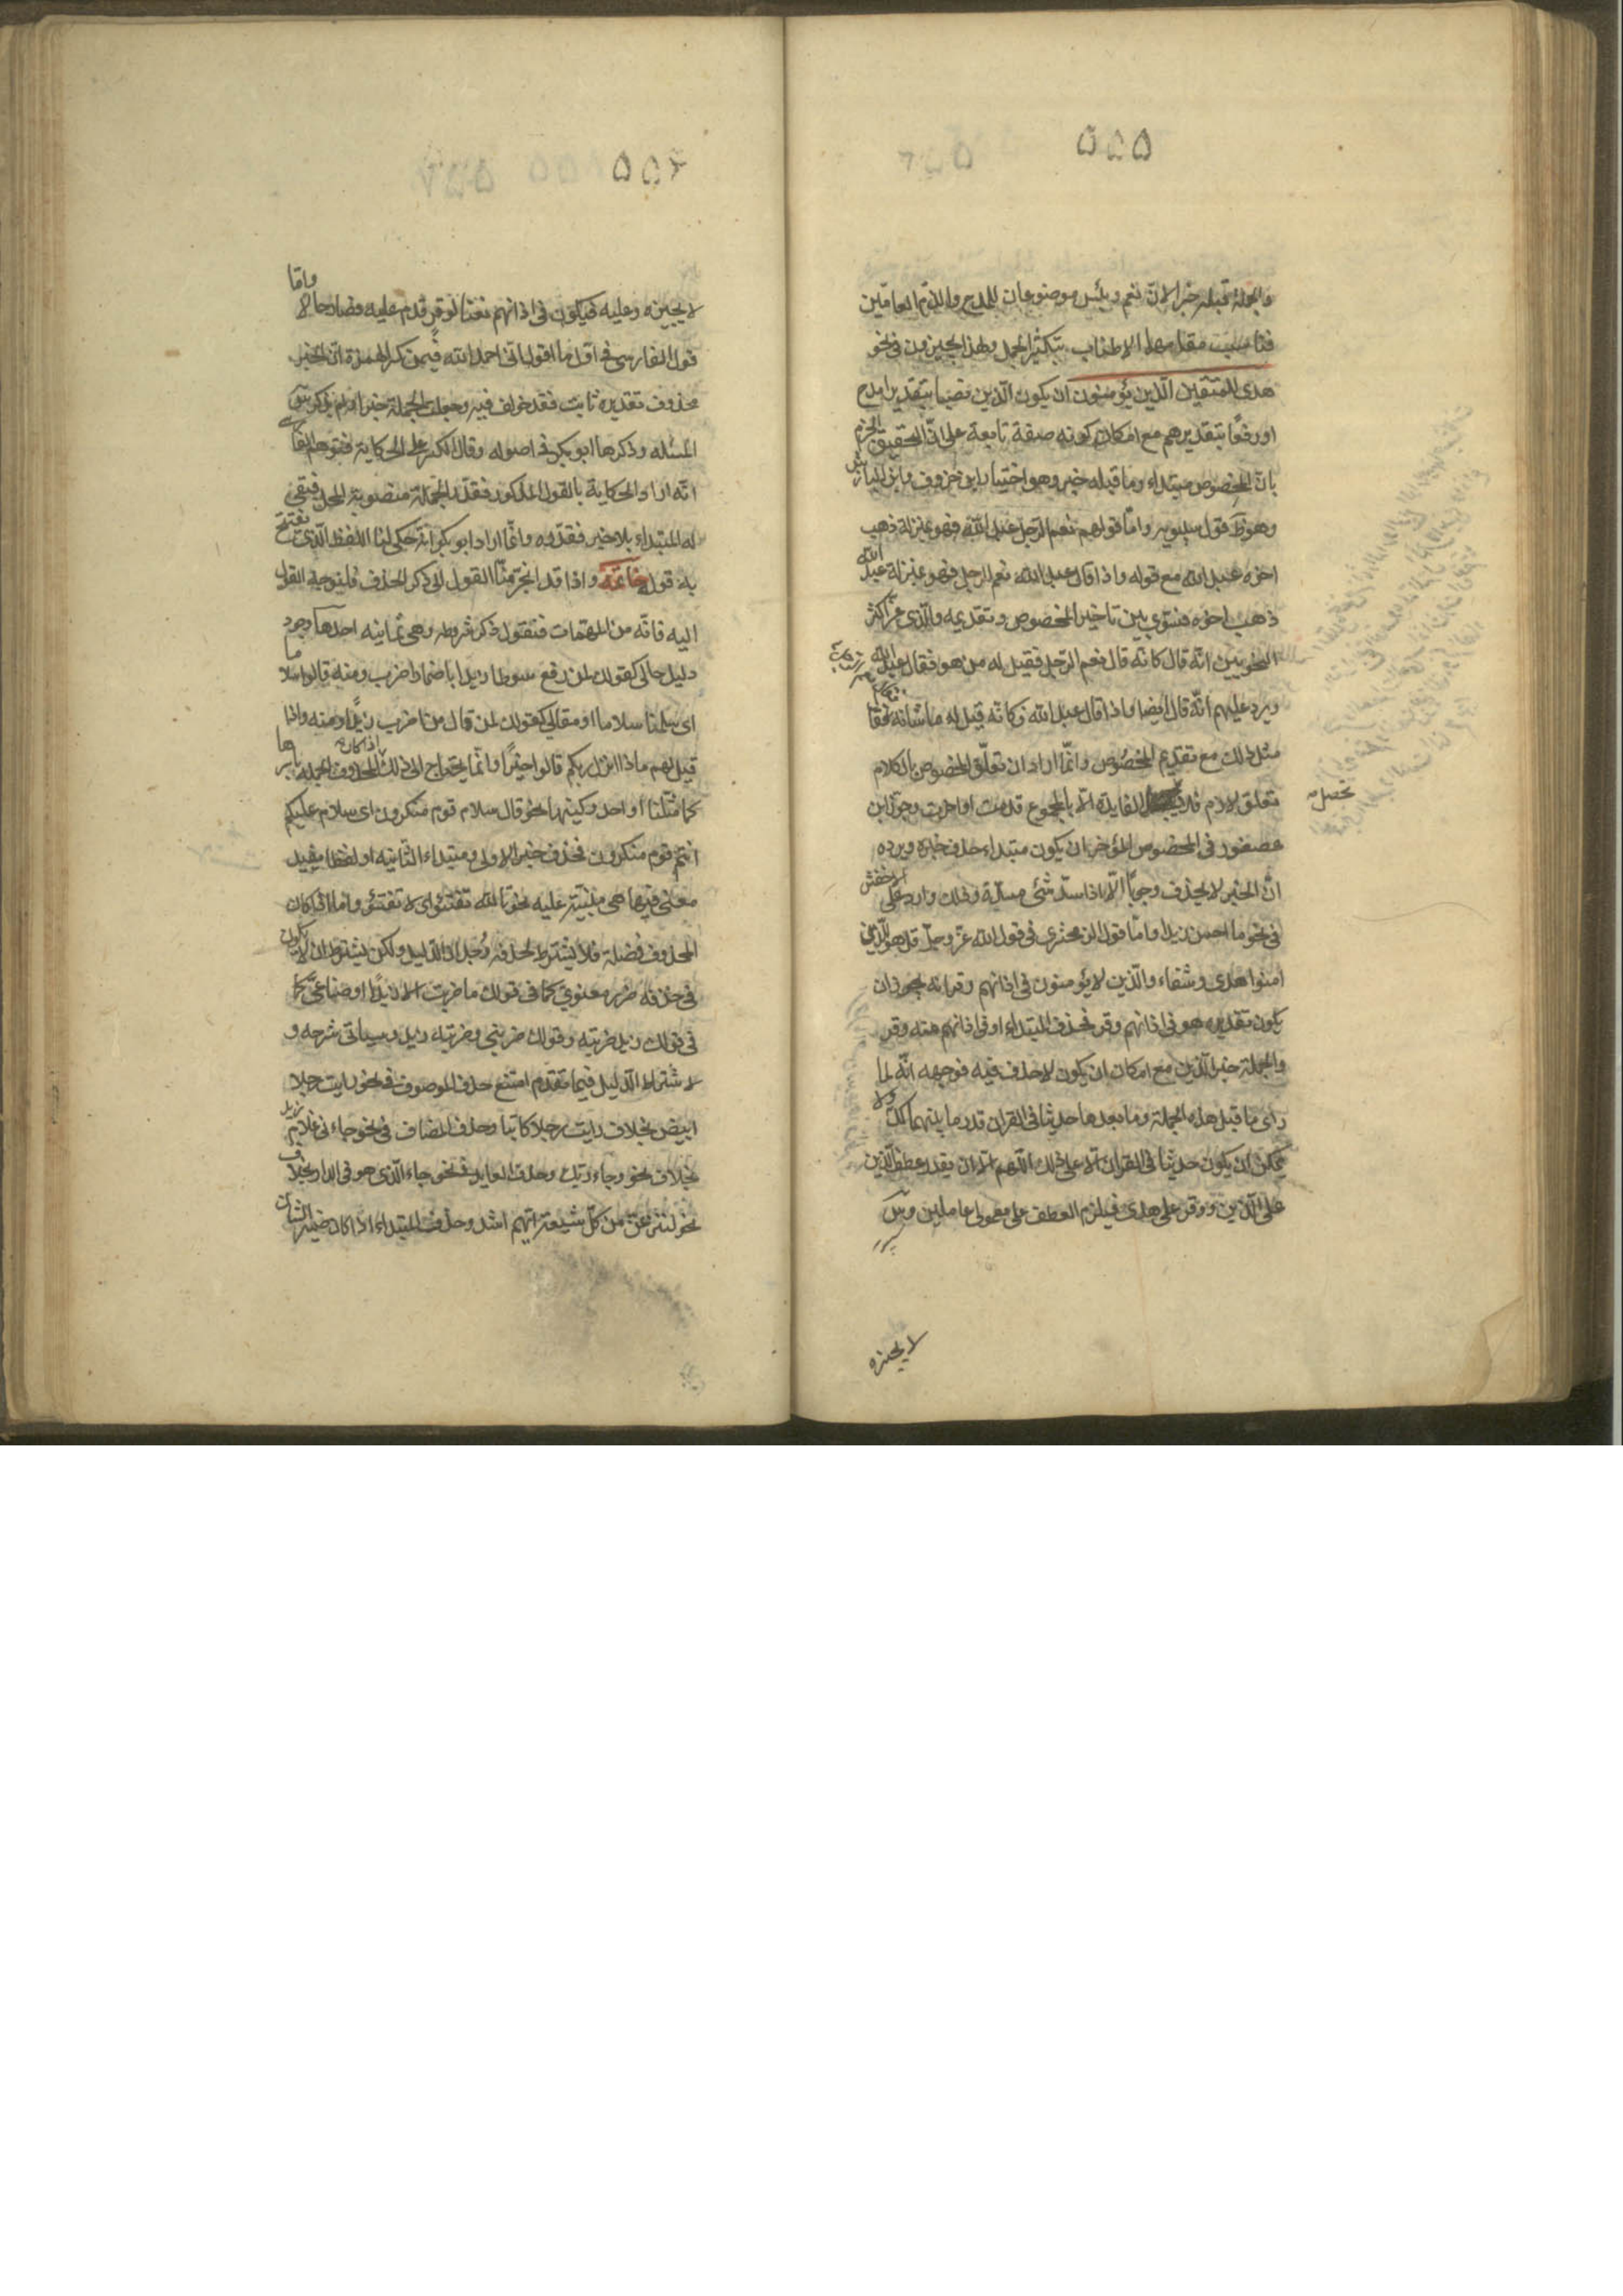 ٥٥٥
والجملة قبله خبرا لان نعم وبئس موضوعان للمدح والذم العامين
فناسبت مقامهما الاطناب بتكثير الجمل ولهذا يجيزون في نحو
هدى للمتقين الذين يؤمنون ان يكون الذين نصبا بتقدير امدح
او رفعا بتقدير هم مع امكان كونه صفة تابعة على ان التحقيق الجزم
بان المخصوص مبتداء وما قبله خبر وهو اختيار ابن خروف وابن الباذش
وهو ظ قول سيبويه واما قولهم نعم الرجل عبد الله فهو بمنزلة ذهب
اخوه عبد الله مع قوله واذا قال عبد الله نعم الرجل فهو بمنزلة عبد الله
ذهب اخوه فسوى بين تاخير المخصوص وتقديمه والذي غر اكثر
النحويين انه قال كانه قال نعم الرجل فقيل له من هو فقال عبد الله
ويرد عليهم انه قال ايضا واذا قال عبد الله فكانه قيل له ما شانه فقا
مثل ذلك مع تقديم المخصوص وانما اراد ان تعلق المخصوص بالكلام
تعلق لازم فلا الفايدة الا بالمجموع قدمت او اخرت وجوز ابن
تحصل
عصفور في المخصوص المؤخر ان يكون مبتداء حذف خبره ويرده
ان الخبر لا يحذف وجوبا الا اذا سد شئ مسده وذلك وارد على الاخفش
في نحو ما احسن زيدا واما قول الزمخشري في قول الله عز وجل قل هو للذين
امنوا هدى وشفاء والذين لا يؤمنون في اذانهم وقر انه يجوز ان
يكون تقديره هو في اذانهم وقر فحذف المبتداء او في اذانهم منه وقر
والجملة خبر الذين مع امكان ان يكون لا حذف فيه فوجهه انه لما
راى ما قبل هذه الجملة وما بعدها حديثا في القران قدر ما بينهما كك ولا
يمكن ان يكون حديثا في القران الا على ذلك اللهم الا ان يقدر عطف الذين
على الذين ووقر على هدى فيلزم العطف على معمولي عاملين وس
لا يجيزه
٥٥٦
لا يجيزه وعليه فيكون في اذانهم نعتا لوقر قدم عليه فصار حالا واما
قول الفارسي في اول ما اقول اني احمد الله فيمن كسر الهمزة ان الخبر
محذوف تقديره ثابت فقد خولف فيه وجعلت الجملة خبرا ولم يذكر س
المسئله وذكرها ابو بكر في اصوله وقال الكسر على الحكاية فتوهم الفا
انه اراد الحكاية بالقول المذكور فقدر الجملة منصوبة المحل فبقى
له المبتداء بلا خبر فقدره وانما اراد ابو بكر انه حكى لنا اللفظ الذي يفتتح
به قوله خاتمة واذا قد انجر بنا القول الى ذكر الحذف فلنوجه القول
اليه فانه من المهمات فنقول ذكر شروطه وهي ثمانيه احدها وجود
دليل حالي كقولك لمن رفع سوطا زيدا باضمار اضرب ومنه قالوا سلاما
اى سلمنا سلاما او مقالي كقولك لمن قال من اضرب زيدا ومنه واذا
قيل لهم ماذا انزل ربكم قالوا خيرا وانما يحتاج الى ذلك اذا كان المحذوف الجمله باسرها
كما مثلنا او احد ركنيها نحو قال سلام قوم منكرون اى سلام عليكم
انتم قوم منكرون فحذف خبر الاولى ومبتداء الثانيه او لفظا يفيد
معنى فيها هي مبنية عليه نحو تالله تفتئوا اى لا تفتئو واما اذا كان
المحذوف فضلة فلا يشترط لحذفه وجدان الدليل ولكن يشترط ان لا يكون
في حذفه ضرر معنوي كما في قولك ما ضربت الا زيدا او صناعي كما
في قولك زيد ضربته وقولك ضربني وضربته زيد وسياتي شرحه و
لاشتراط الدليل فيما تقدم امتنع حذف الموصوف في نحو رايت رجلا
ابيض بخلاف رايت رجلا كاتبا وحذف المضاف في نحو جاءني غلام زيد
بخلاف نحو وجاء ربك وحذف العايد في نحو جاء الذي هو في الدار بخلاف
نحو لننزعن من كل شيعة ايهم اشد وحذف المبتداء اذا كان ضمير الشان